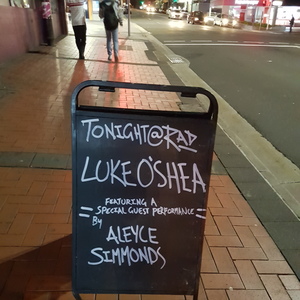 TONIGHT@RAD
LUKE O'SHEA
FEATURING A
SPECIAL GUEST PERFORMANCE
By
ALEYCE
SIMMONDS